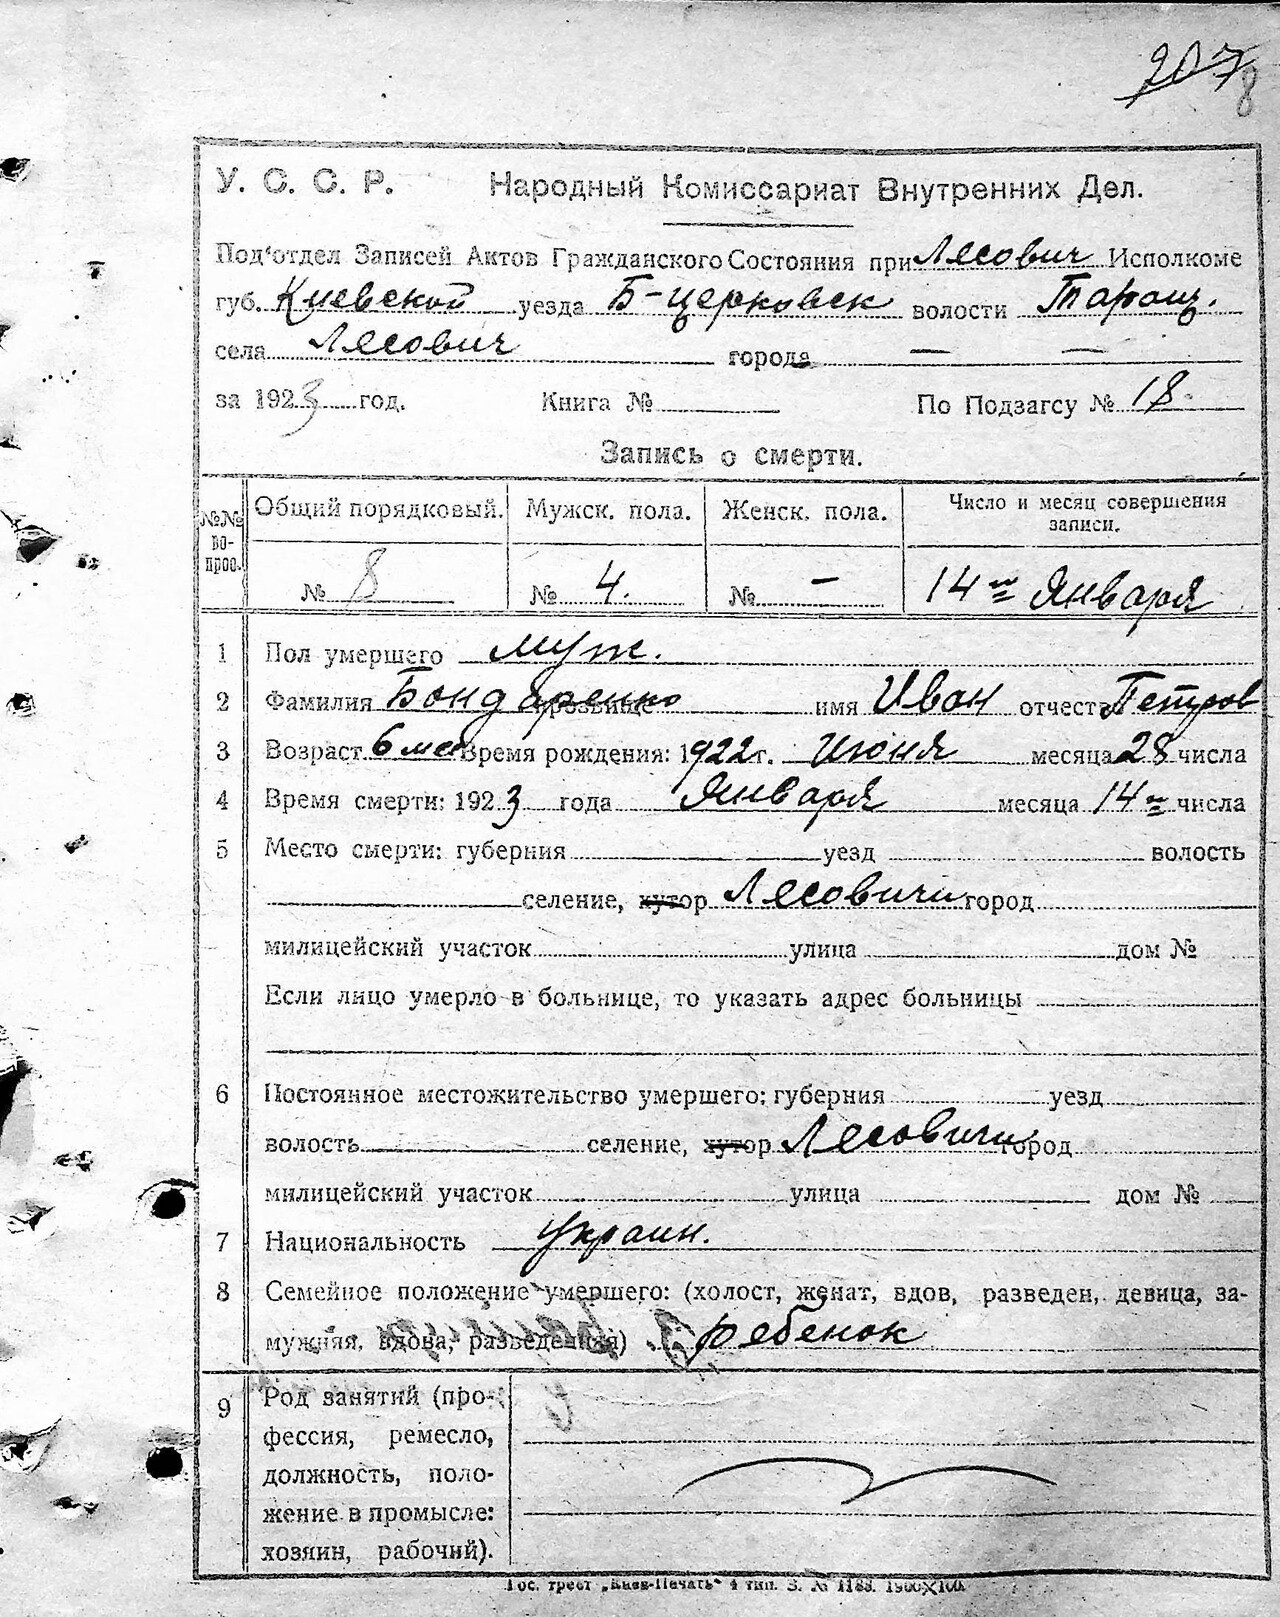 207
8
У. С. С. Р. Народный Комиссариат Внутренних Дел.
Под'отдел Записей Актов Гражданского Состояния при Лесович Исполкоме
губ. Киевской уезда Б-церковск волости Таращ.
села Лесович города — —
за 1923 год. Книга № По Подзагсу № 18.
Запись о смерти.
№№ вопрос. Общий порядковый. Мужск. пола. Женск. пола. Число и месяц совершения записи.
№ 8 № 4. № – 14го Января
1 Пол умершего муж.
2 Фамилия Бондаренко прозвище имя Иван отчеств Петров
3 Возраст 6 мес Время рождения: 1922 г. Июня месяца 28 числа
4 Время смерти: 1923 года Января месяца 14го числа
5 Место смерти: губерния уезд волость
селение, хутор Лесовичи город
милицейский участок улица дом №
Если лицо умерло в больнице, то указать адрес больницы
6 Постоянное местожительство умершего: губерния уезд
волость селение, хутор Лесовичи город
милицейский участок улица дом №
7 Национальность украин.
8 Семейное положение умершего: (холост, женат, вдов, разведен, девица, за-
мужняя, вдова, разведенная) ребёнок
9 Род занятий (про-
фессия, ремесло,
должность, поло-
жение в промысле:
хозяин, рабочий).
Гос. трест „Киев-Печать" 4 тип. З. № 1188. 1900×100.